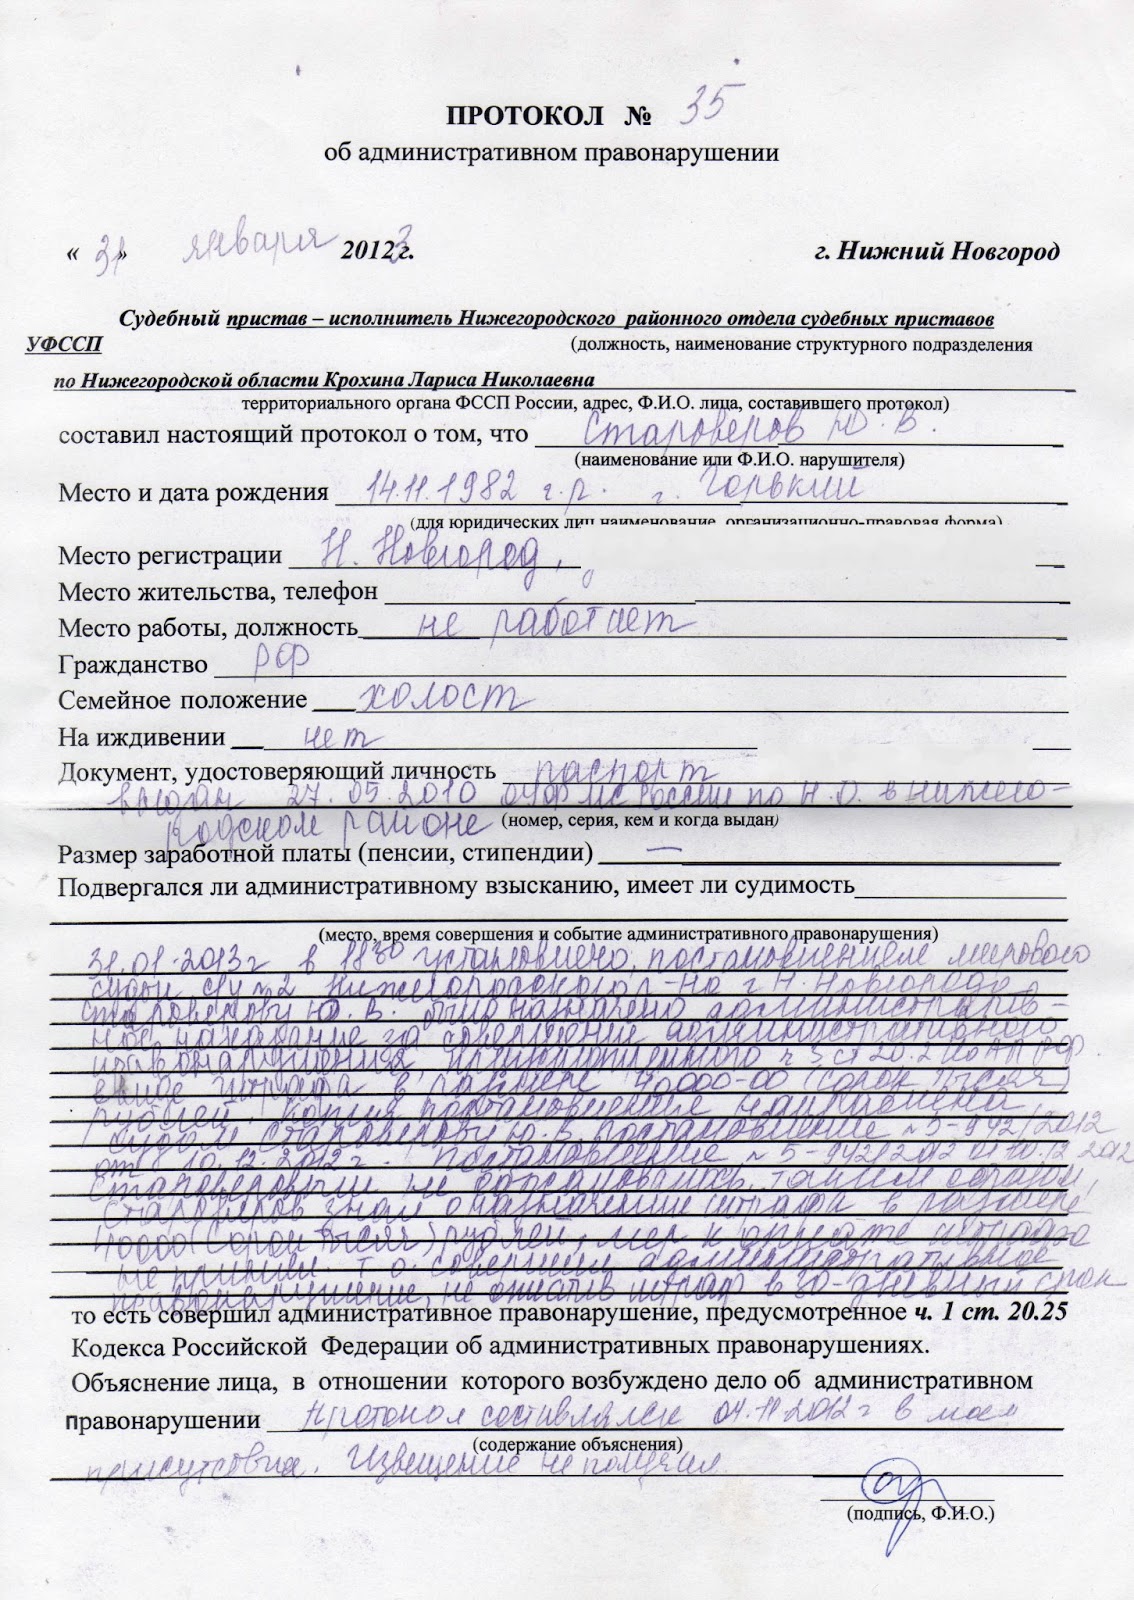 ПРОТОКОЛ № 35
об административном правонарушении
« 31 » января 2013 г. г. Нижний Новгород
Судебный пристав – исполнитель Нижегородского районного отдела судебных приставов
УФССП (должность, наименование структурного подразделения
по Нижегородской области Крохина Лариса Николаевна
территориального органа ФССП России, адрес, Ф.И.О. лица, составившего протокол)
составил настоящий протокол о том, что Староверов Ю. В.
(наименование или Ф.И.О. нарушителя)
Место и дата рождения 14.11.1982 г.р. г. Горький
(для юридических лиц наименование, организационно-правовая форма)
Место регистрации Н. Новгород,
Место жительства, телефон
Место работы, должность не работает
Гражданство РФ
Семейное положение холост
На иждивении нет
Документ, удостоверяющий личность паспорт
выдан 27.05.2010 ОУФМС России по Н.О. в Нижего-
родском районе (номер, серия, кем и когда выдан)
Размер заработной платы (пенсии, стипендии) —
Подвергался ли административному взысканию, имеет ли судимость
(место, время совершения и событие административного правонарушения)
31.01.2013 г в 18 30 установлено, постановлением мирового
судьи с/у №2 Нижегородского р-на г Н. Новгорода
Староверову Ю. В. было назначено административ-
ное наказание за совершение административного
правонарушения предусмотренного ч 3 ст 20.2 КоАП РФ
в виде штрафа в размере 40000-00 (сорок тысяч)
рублей. Копия постановления направлена
судом Староверову Ю.В. постановление №5-942/2012
от 10.12.2012 г. Постановление №5-942/2012 от 10.12.2012
Староверовым не обжаловалось, таким образом,
Староверов знал о назначении штрафа в размере
40000 (сорок тысяч) рублей, мер к оплате штрафа
не принял т.о. совершил административное
правонарушение, не оплатив штраф в 30-дневный срок
то есть совершил административное правонарушение, предусмотренное ч. 1 ст. 20.25
Кодекса Российской Федерации об административных правонарушениях.
Объяснение лица, в отношении которого возбуждено дело об административном
правонарушении Протокол составлялся 04.11.2012 г в моем
(содержание объяснения)
присутствии. Извещение не получал.
(подпись, Ф.И.О.)